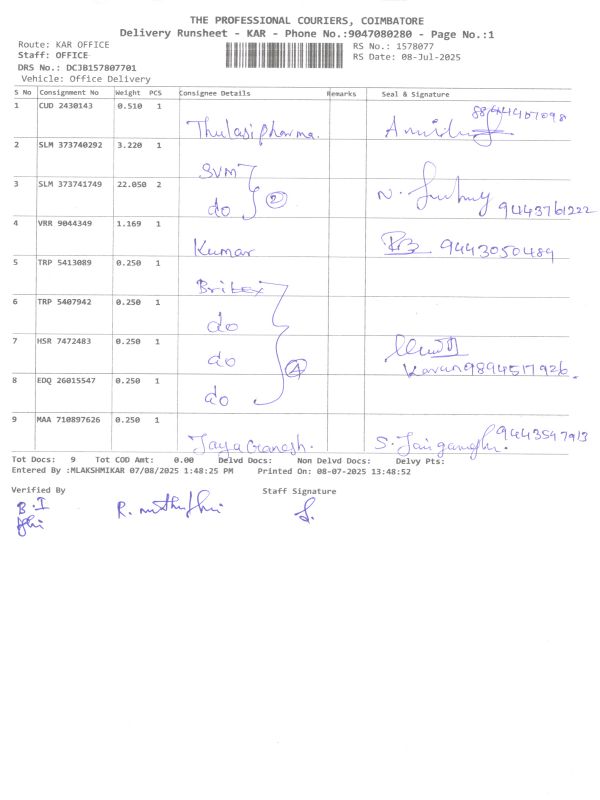 THE PROFESSIONAL COURIERS, COIMBATORE
Delivery Runsheet - KAR - Phone No.:9047080280 - Page No.:1
Route: KAR OFFICE
RS No.: 1578077
Staff: OFFICE
RS Date: 08-Jul-2025
DRS No.: DCJB157807701
Vehicle: Office Delivery
S No Consignment No Weight PCS Consignee Details Remarks Seal & Signature
1 CUD 2430143 0.510 1 Thulasi pharma.
2 SLM 373740292 3.220 1 SVM
3 SLM 373741749 22.050 2 do 2 9443761222
4 VRR 9044349 1.169 1 Kumar 9443050489
5 TRP 5413089 0.250 1 Britex
6 TRP 5407942 0.250 1 do
7 HSR 7472483 0.250 1 do 4 Karan 9894517926.
8 EDQ 26015547 0.250 1 do
9 MAA 710897626 0.250 1 Jaya Ganesh. 9443547913
Tot Docs: 9 Tot COD Amt: 0.00 Delvd Docs: Non Delvd Docs: Delvy Pts:
Entered By :MLAKSHMIKAR 07/08/2025 1:48:25 PM Printed On: 08-07-2025 13:48:52
Verified By Staff Signature